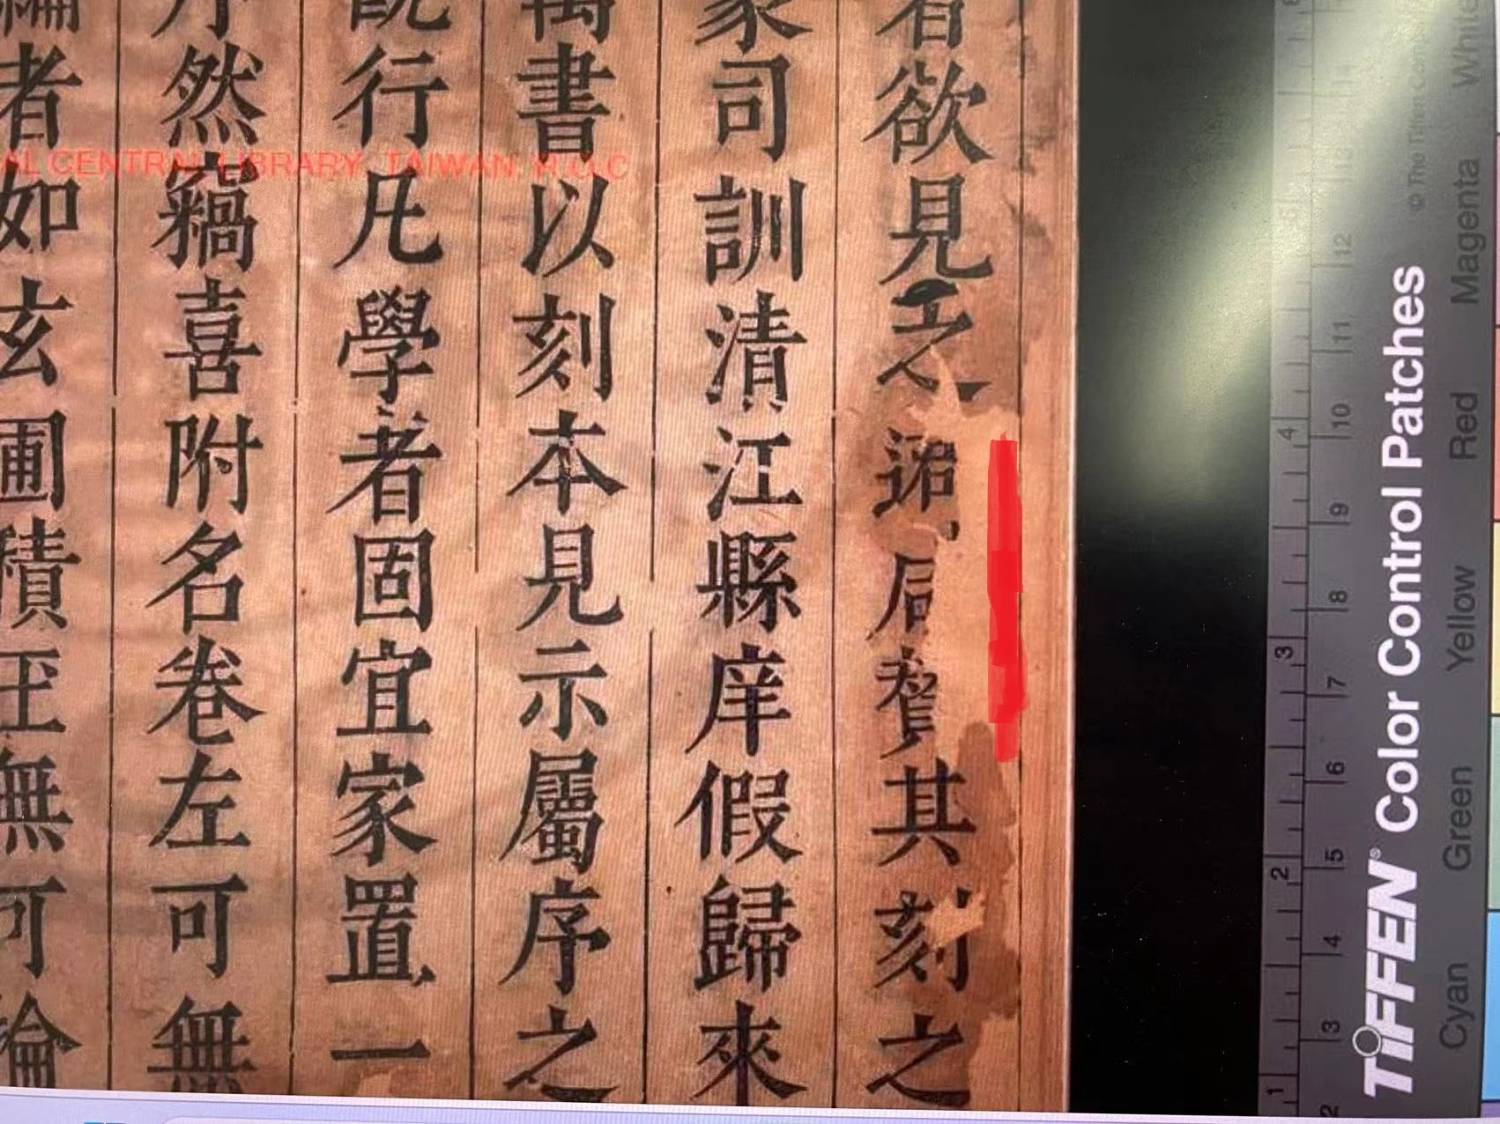 欲見之 其刻之
家司訓清江縣庠假歸來
萬書以刻本見示屬序之
既行凡學者固宜家置一
序然竊喜附名卷左可無
編者如玄圃積玉無可掄
NATIONAL CENTRAL LIBRARY, TAIWAN, R.O.C
6 5 4 3 2 1
13 12 11 10 9 8 7 6 5 4 3 2
TIFFEN® Color Control Patches
© The Tiffen Com
Cyan Green Yellow Red Magenta White